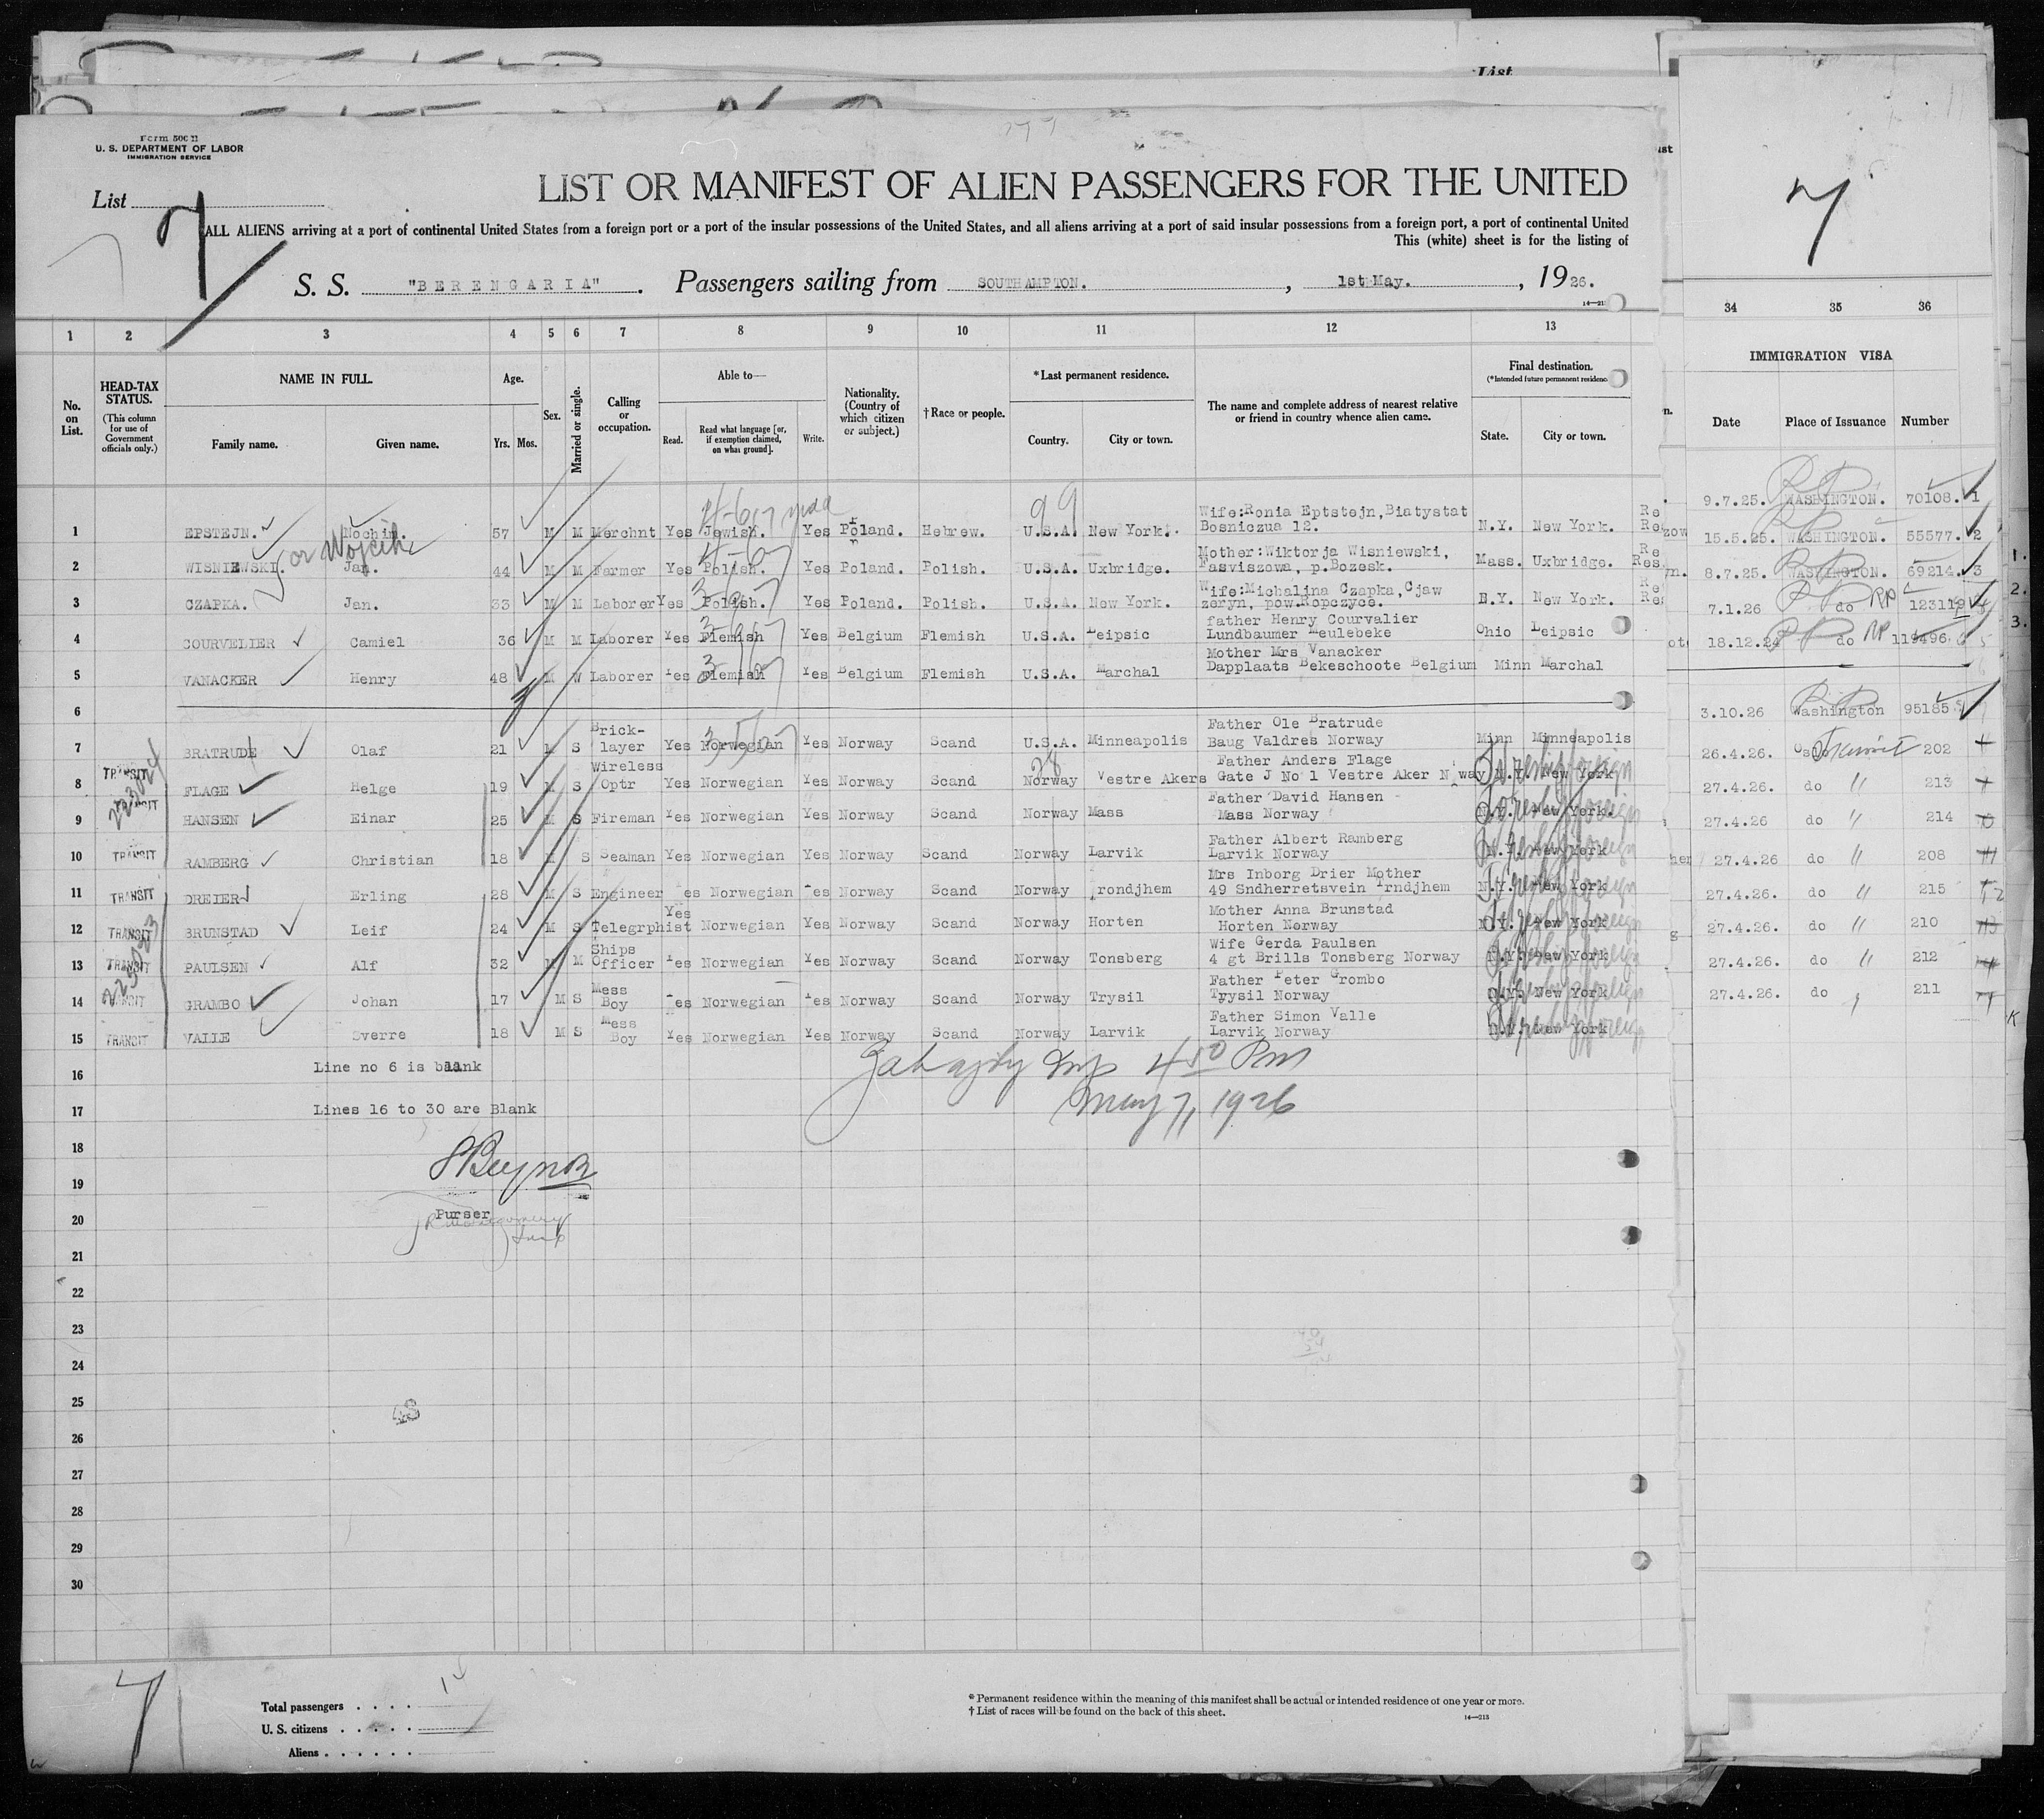 List
Form 500 B
U. S. DEPARTMENT OF LABOR
IMMIGRATION SERVICE
List 7
LIST OR MANIFEST OF ALIEN PASSENGERS FOR THE UNITED
ALL ALIENS arriving at a port of continental United States from a foreign port or a port of the insular possessions of the United States, and all aliens arriving at a port of said insular possessions from a foreign port, a port of continental United
This (white) sheet is for the listing of
S. S. "BERENGARIA". Passengers sailing from SOUTHAMPTON. , 1st May. , 1926.
7
1 2 3 4 5 6 7 8 9 10 11 12 13 34 35 36
No. on List.
HEAD-TAX STATUS.
(This column for use of Government officials only.)
NAME IN FULL.
Family name. Given name.
Age.
Yrs. Mos.
Sex.
Married or single.
Calling or occupation.
Able to—
Read. Read what language [or, if exemption claimed, on what ground]. Write.
Nationality. (Country of which citizen or subject.)
† Race or people.
* Last permanent residence.
Country. City or town.
The name and complete address of nearest relative or friend in country whence alien came.
Final destination.
(*Intended future permanent residence
State. City or town.
IMMIGRATION VISA
Date Place of Issuance Number
1 EPSTEJN. Nochim. 57 M M Merchnt Yes Jewish. Yes Poland. Hebrew. U.S.A. New York. Wife:Ronia Eptstejn,Biatystat Bosniczua 12. N.Y. New York.
or Wojcik
2 WISNIEWSKI. Jan. 44 M M Farmer Yes Polish. Yes Poland. Polish. U.S.A. Uxbridge. Mother:Wiktorja Wisniewski, Fasviszowa, p.Bozesk. Mass. Uxbridge.
3 CZAPKA. Jan. 33 M M Laborer Yes Polish. Yes Poland. Polish. U.S.A. New York. Wife:Michalina Czapka,Cjaw zeryn, pow.Ropczyce. N.Y. New York.
4 COURVELIER Camiel 36 M M Laborer Yes Flemish Yes Belgium Flemish U.S.A. Leipsic father Henry Courvalier Lundbaumer Meulebeke Ohio Leipsic
5 VANACKER Henry 48 M W Laborer Yes Flemish Yes Belgium Flemish U.S.A. Marchal Mother Mrs Vanacker Dapplaats Bekeschoote Belgium Minn Marchal
6
7 BRATRUDE Olaf 21 M S Brick-layer Yes Norwegian Yes Norway Scand U.S.A. Minneapolis Father Ole Bratrude Baug Valdres Norway Minn Minneapolis
8 TRANSIT FLAGE Helge 19 M S Wireless Optr Yes Norwegian Yes Norway Scand Norway Vestre Akers Father Anders Flage Gate J No 1 Vestre Aker N way N.Y. New York
9 TRANSIT HANSEN Einar 25 M S Fireman Yes Norwegian Yes Norway Scand Norway Mass Father David Hansen Mass Norway N.Y. New York.
10 TRANSIT RAMBERG Christian 18 M S Seaman Yes Norwegian Yes Norway Scand Norway Larvik Father Albert Ramberg Larvik Norway N.Y. New York
11 TRANSIT DREIER Erling 28 M S Engineer Yes Norwegian Yes Norway Scand Norway Trondjhem Mrs Inborg Drier Mother 49 Sndherretsvein Trndjhem N.Y. New York
12 TRANSIT BRUNSTAD Leif 24 M S Telegrphist Yes Norwegian Yes Norway Scand Norway Horten Mother Anna Brunstad Horten Norway N.Y. New York
13 TRANSIT PAULSEN Alf 32 M M Ships Officer Yes Norwegian Yes Norway Scand Norway Tonsberg Wife Gerda Paulsen 4 gt Brills Tonsberg Norway N.Y. New York
14 TRANSIT GRAMBO Johan 17 M S Mess Boy Yes Norwegian Yes Norway Scand Norway Trysil Father Peter Grombo Trysil Norway N.Y. New York
15 TRANSIT VALLE Sverre 18 M S Mess Boy Yes Norwegian Yes Norway Scand Norway Larvik Father Simon Valle Larvik Norway N.Y. New York
9.7.25. WASHINGTON. 70108. 1
15.5.25. WASHINGTON. 55577. 2
8.7.25. WASHINGTON. 69214. 3
7.1.26 do 123119
18.12.24 do 119496
3.10.26 Washington 95185
26.4.26. Oslo Transit 202
27.4.26. do " 213
27.4.26 do " 214
27.4.26 do " 208
27.4.26. do " 215
27.4.26. do " 210
27.4.26. do " 212
27.4.26. do 211
16 Line no 6 is blank
17 Lines 16 to 30 are Blank
4 50 Pm
May 7, 1926
18
19
20 Purser
21
22
23
24
25
26
27
28
29
30
7
Total passengers . . . .
U. S. citizens . . . . .
Aliens . . . . . .
* Permanent residence within the meaning of this manifest shall be actual or intended residence of one year or more.
† List of races will be found on the back of this sheet.
14—213